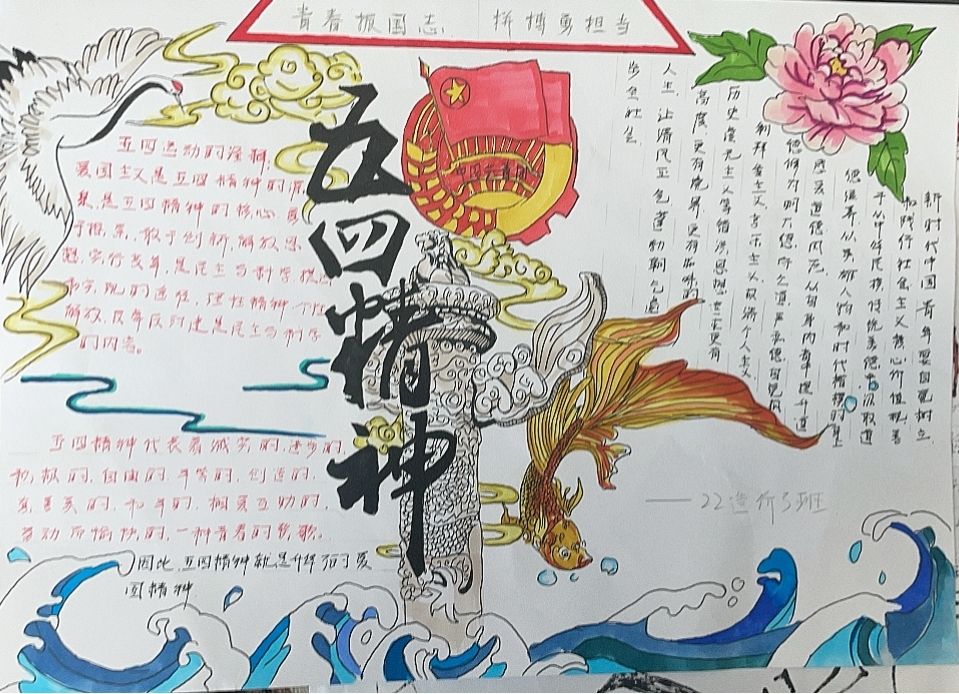 青春报国志 拼搏勇担当
五四精神
中国共青团
五四运动的淫靡,
爱国主义是五四精神的源
泉,是五四精神的核心。勇
于探索,敢于创新,解放思
想,实行变革,是民主与科学提出
和实现的途径,理性精神、个性
解放、反帝反封建是民主与科学
的内容。
五四精神代表着诚实的、进步的、
积极的、自由的、平等的、创造的、
善美的、和平的、相爱互助的、
劳动而愉快的,一种青春的赞歌。
因此,五四精神就是升华了的爱
国精神
新时代中国青年要自觉树立
和践行社会主义核心价值观,善
于从中华民族传统美德中汲取道
德滋养,从英雄人物和时代楷模的身上
感受道德风范,从自身内省中提升道
德修为,明大德、守公德、严私德,自觉抵
制拜金主义、享乐主义、极端个人主义、
历史虚无主义等错误思想,追求更有
高度、更有境界、更有品味的
人生,让清风正气、蓬勃朝气遍
步全社会。
——22造价3班